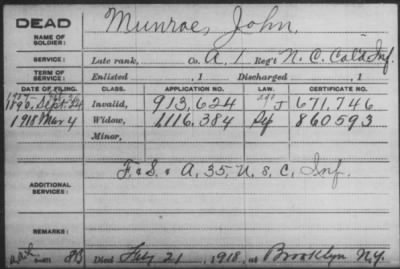 DEAD
NAME OF SOLDIER: Munroe, John.
SERVICE: Late rank, Co. A, 1 Reg't N. C. Col'd Inf.
TERM OF SERVICE: Enlisted , 1 Discharged , 1
DATE OF FILING. CLASS. APPLICATION NO. LAW. CERTIFICATE NO.
1890, Sept. 24 Invalid, 913,624 J 671,746
1918 Mar 4 Widow, 1116,384 860593
Minor,
ADDITIONAL SERVICES: F. & S. & A, 35, U. S. C. Inf.
REMARKS:
Died July 21, 1918, at Brooklyn N.Y.